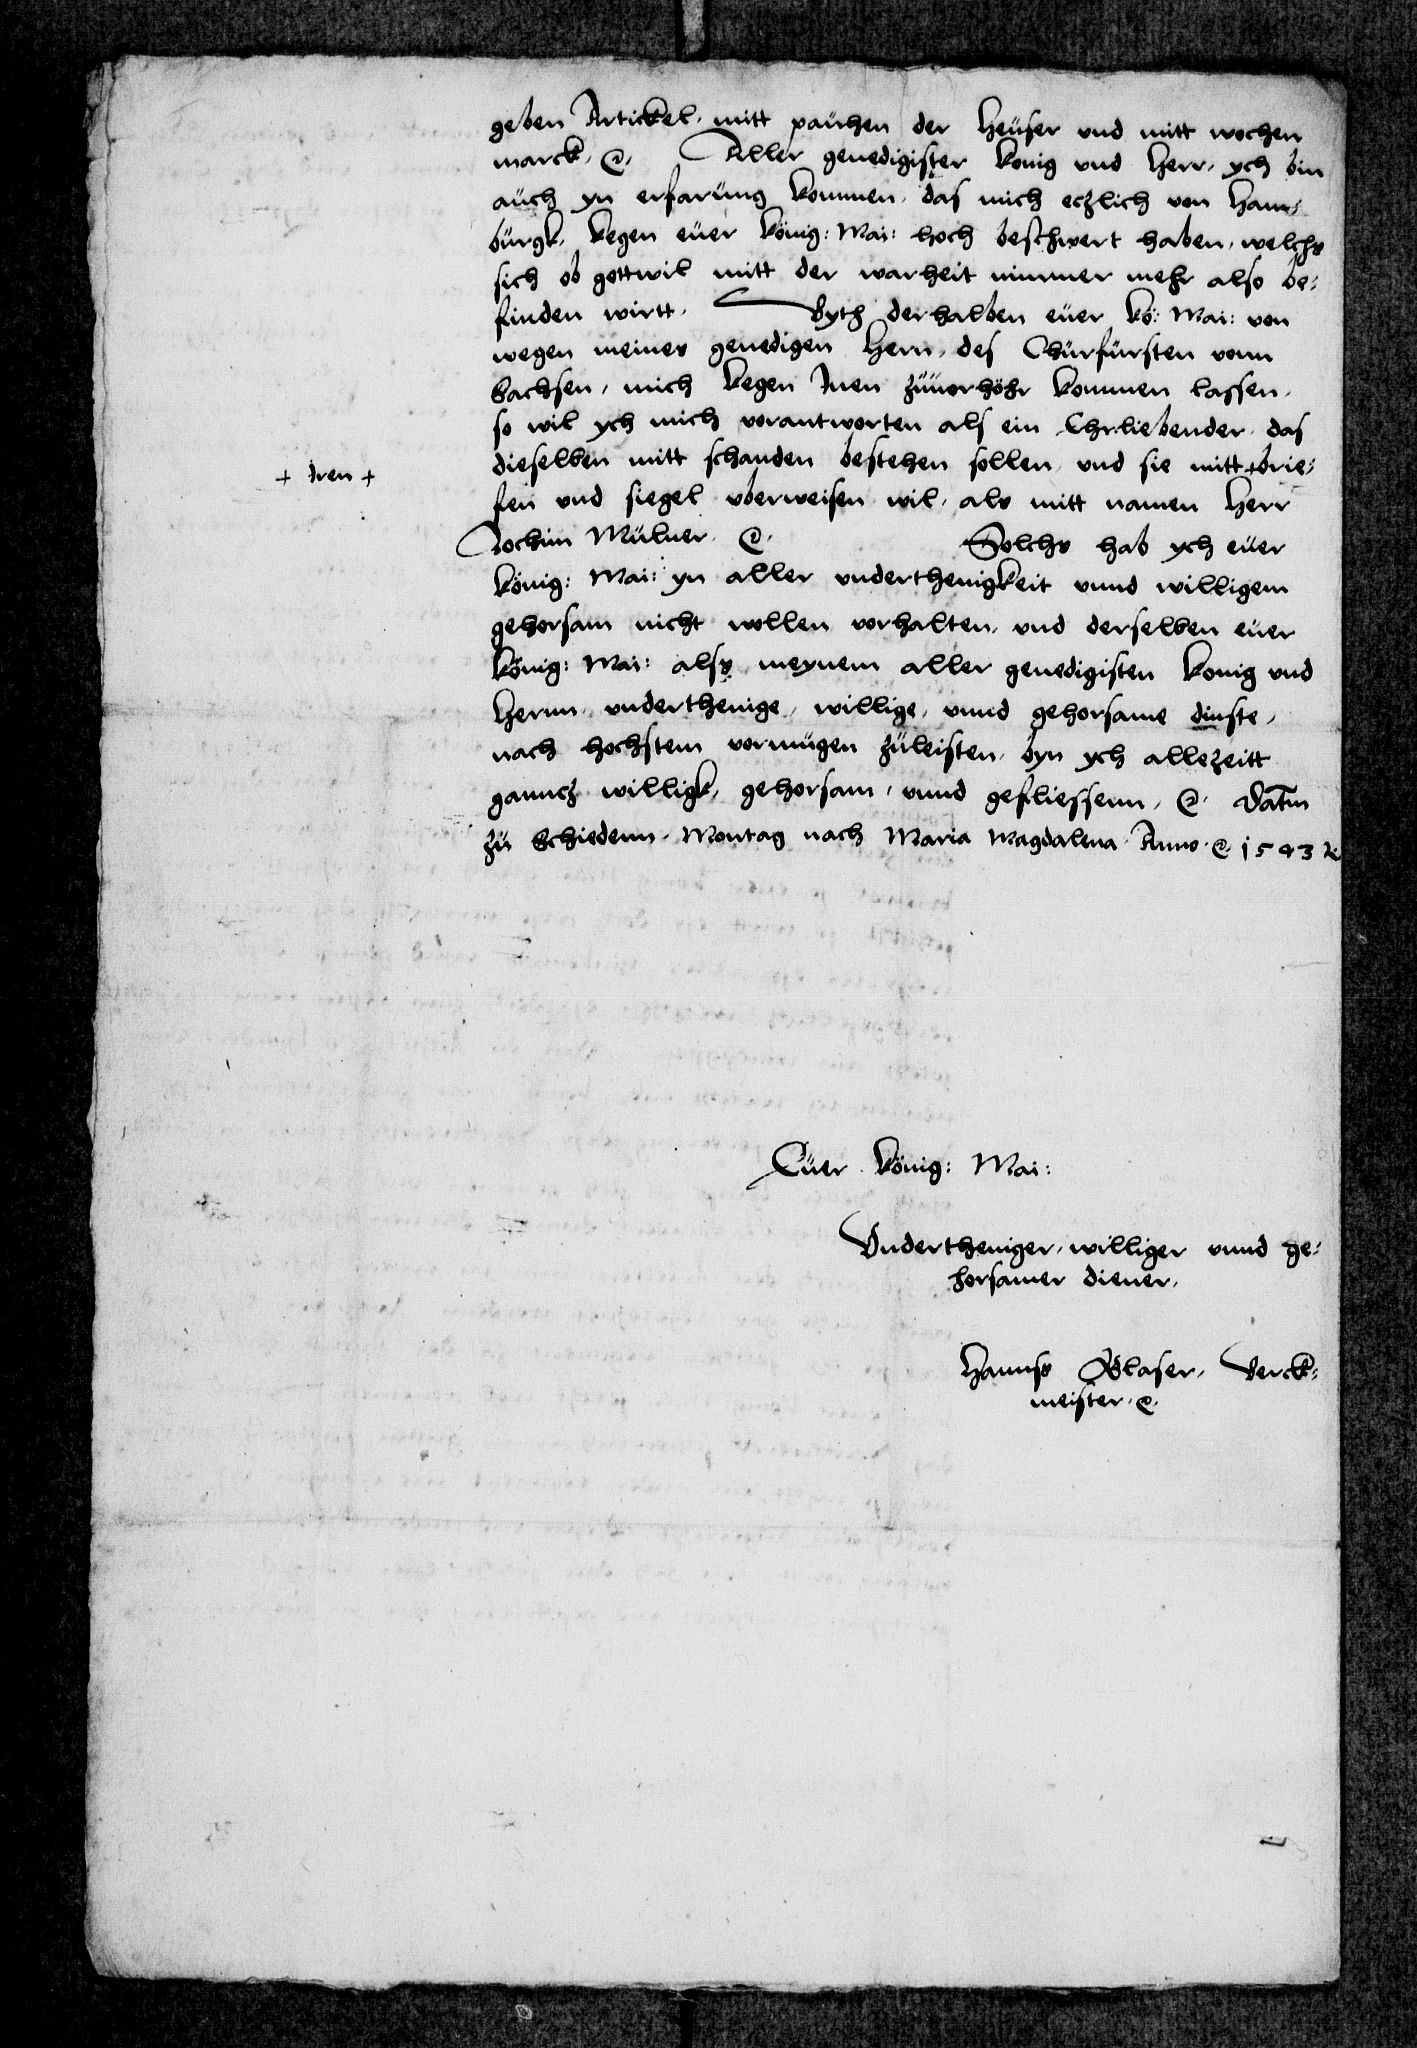 geben Artickel, mitt pauhen der Heüser und mitt wochen
marck, etc. Aller genedigister konig und Herr, ych bin
aüch yn erfarüng kommen, das mich eczlich von Ham-
bürgk, kegen eüer König: Mai: hoch beschwert haben, welchs
sich ob gottwil mitt der warheit nimmer mehr also be-
finden wirtt. Byth derhalben eüer kö: Mai: von
wegen meines genedigen Hern, des Chürfürsten vonn
Sachsen, mich kegen Inen züuorhöhr kommen lassen,
so wil ych mich vorantworten als ein Ehrliebender, das
dieselben mitt schanden bestehen sollen, und sie mitt + brie-
+ iren +
fen und siegel uberweisen wil, als mitt namen Herr
Jochim Mülner, etc. Solchs hab ych eüer
könig: Mai: yn aller underthenigkeit unnd willigem
gehorsam nicht wollen vorhalten, und derselben eüer
könig: Mai: alss meynem aller genedigisten konig und
Hernn, underthenige, willige, unnd gehorsame dinste,
nach hochstem vormügen züleisten, byn ych allezeitt
ganncz willigk, gehorsam, unnd gefliessenn, etc. Datum
zü Schiedenn, Montag nach Maria Magdalena Anno etc 1543
Eüer König: Mai:
Undertheniger, williger unnd ge-
horsamer diener,
Hanns Glaser, Berck-
meister, etc